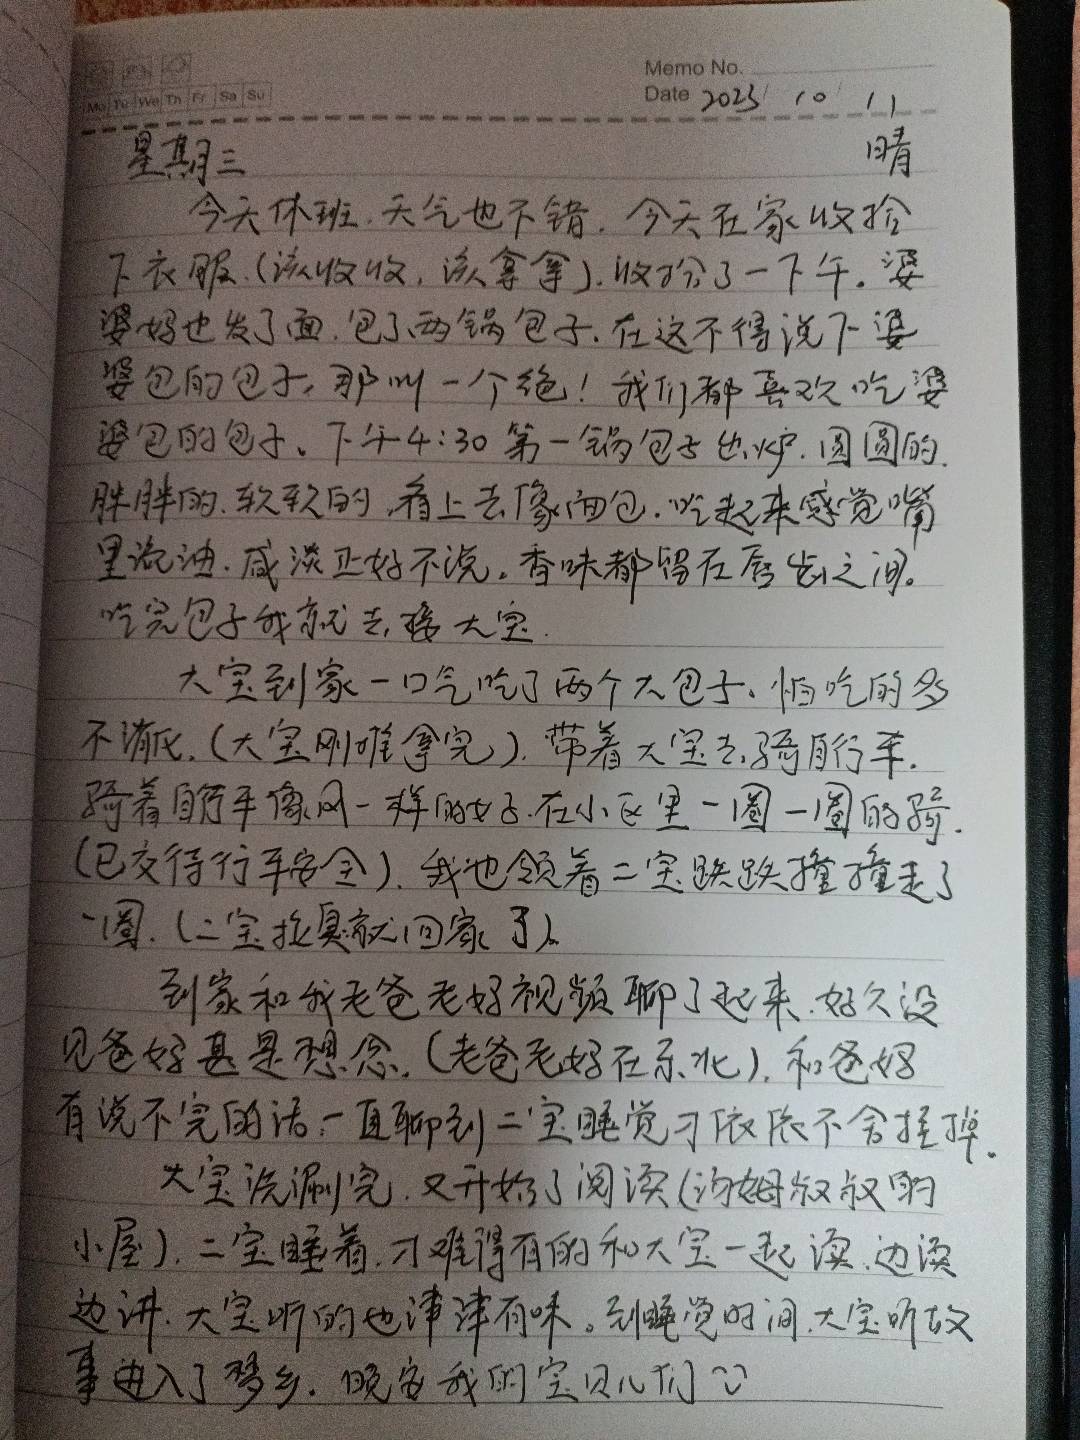 Memo No.
Mo Tu We Th Fr Sa Su
Date 2023/10/11
星期三 晴
今天休班.天气也不错.今天在家收拾
下衣服.(该收收,该拿拿).收拾了一下午。婆
婆妈也发了面.包了两锅包子.在这不得说下婆
婆包的包子,那叫一个绝!我们都喜欢吃婆
婆包的包子。下午4:30第一锅包子出炉.圆圆的.
胖胖的.软软的,看上去像面包.吃起来感觉嘴
里流油.咸淡正好不说。香味都留在唇齿之间。
吃完包子我就去接大宝.
大宝到家一口气吃了两个大包子、怕吃的多
不消化.(大宝刚难拿完).带着大宝去骑自行车.
骑着自行车像风一样的女子.在小区里一圈一圈的骑.
(已交待行车安全).我也领着二宝跌跌撞撞走了
一圈.(二宝拉臭就回家了)。
到家和我老爸老妈视频聊了起来.好久没
见爸妈甚是想念.(老爸老妈在东北).和爸妈
有说不完的话.一直聊到二宝睡觉才依依不舍挂掉。
大宝洗涮完.又开始了阅读(汤姆叔叔的
小屋).二宝睡着.才难得有的和大宝一起读.边读
边讲.大宝听的也津津有味。到睡觉时间.大宝听故
事进入了梦乡.晚安我的宝贝儿们